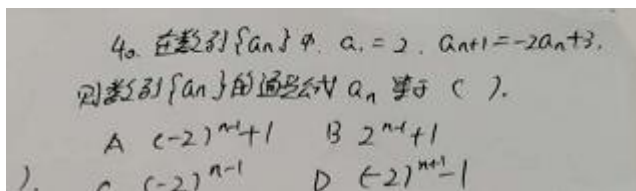 40. 在数列{an}中, a₁=2, an+1=-2an+3,
则数列{an}的通项公式 an 等于 ( ).
A (-2)ⁿ⁻¹+1 B 2ⁿ⁻¹+1
). C (-2)ⁿ⁻¹ D (-2)ⁿ⁺¹-1